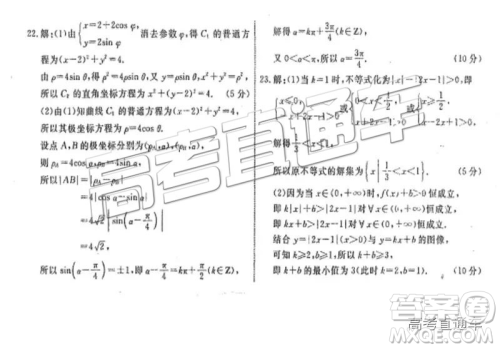 22.解:(1)由{x=2+2cos φ, y=2sin φ 消去参数 φ,得 C₁ 的普通方
程为(x-2)²+y²=4.
由 ρ=4sin θ,得 ρ²=4ρsin θ,又 y=ρsin θ,x²+y²=ρ²,
所以 C₂ 的直角坐标方程为 x²+(y-2)²=4. (5 分)
(2)由(1)知曲线 C₁ 的普通方程为(x-2)²+y²=4,
所以其极坐标方程为 ρ=4cos θ.
设点 A,B 的极坐标分别为(ρA,α),(ρB,α),
则 ρA=4cos α,ρB=4sin α,
所以|AB|=|ρA-ρB|
=4|cos α-sin α|
=4√2|sin(α-π/4)|
=4√2,
所以 sin(α-π/4)=±1,即 α-π/4= +kπ(k∈Z),
解得 α=kπ+3π/4(k∈Z),
又 0<α<π,所以 α=3π/4. (10 分)
23.解:(1)当 k=1 时,不等式化为|x|-|2x-1|>0,即
{x≤0, -x+2x-1>0 或{0<x<1/2, x+2x-1>0 或{x≥1/2, x-2x+1>0.
解得 1/3<x<1.
所以原不等式的解集为{x|1/3<x<1}. (5 分)
(2)因为当 x∈(0,+∞)时,f(x)+b>0 恒成立,
即 k|x|+b>|2x-1|对 x∈(0,+∞)恒成立,
即 kx+b>|2x-1|对 x∈(0,+∞)恒成立.
结合 y=|2x-1|(x>0)与 y=kx+b 的图像,
可知 k≥2,b≥1,所以 k+b≥3,
即 k+b 的最小值为 3(此时 k=2,b=1). (10 分)
高考直通车
答案圈
高考直通车
MXQE.COM